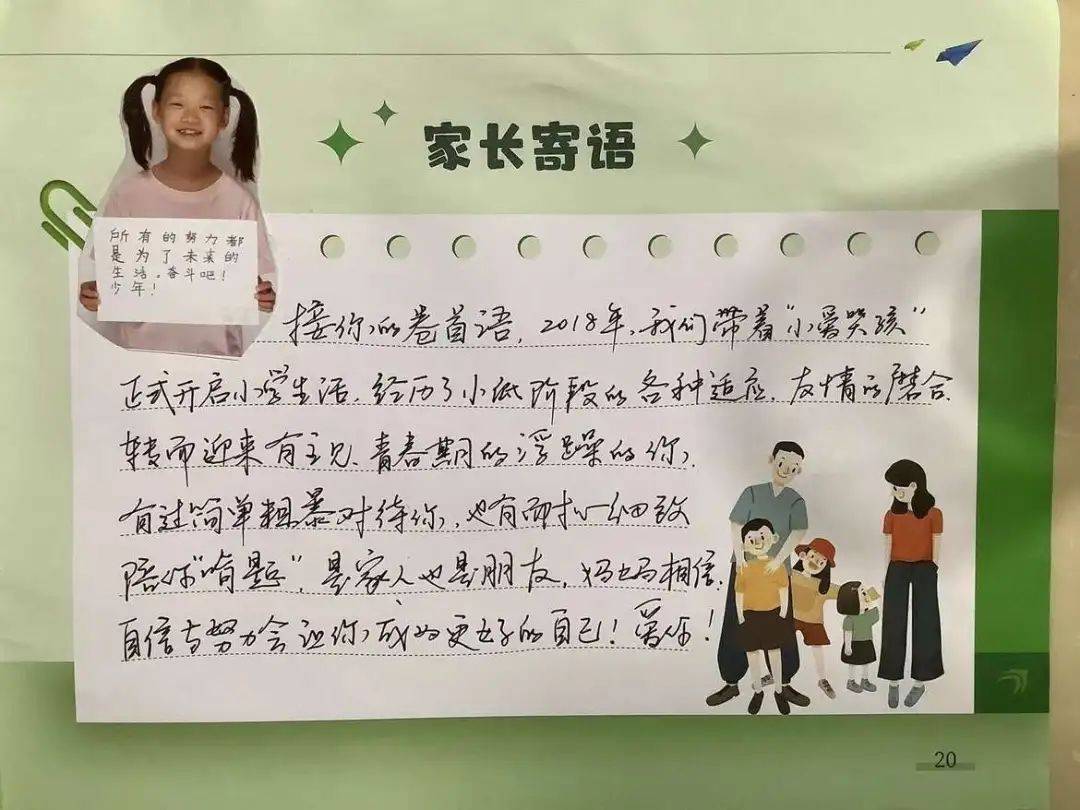 家长寄语
所有的努力都
是为了未来的
生活。奋斗吧!
少年!
接你的卷首语，2018年，我们带着“小爱哭孩”
正式开启小学生活，经历了小低阶段的各种适应，友情的磨合，
转而迎来有主见、青春期的浮躁的你，
有过简单粗暴对待你，也有耐心细致
陪你“啃题”，是家人也是朋友，妈妈相信，
自信与努力会让你成为更好的自己！爱你！
20